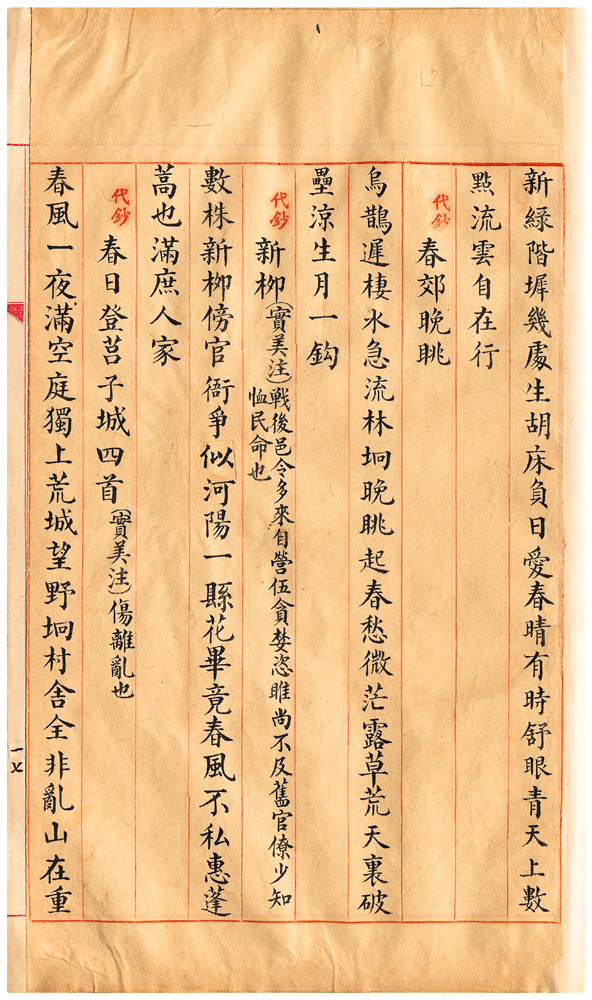 新緑階墀幾處生胡床負日愛春晴有時舒眼青天上數
點流雲自在行
代鈔
春郊晚眺
烏鵲遲棲水急流林坰晚眺起春愁微茫露草荒天裏破
壘涼生月一鈎
代鈔
新栁(實美注)戰後邑令多來自營伍貪婪恣睢尚不及舊官僚少知
恤民命也
數株新栁傍官衙爭似河陽一縣花畢竟春風不私惠蓬
蒿也滿庶人家
代鈔
春日登莒子城四首(實美注)傷離亂也
春風一夜滿空庭獨上荒城望野坰村舍全非亂山在重
一七